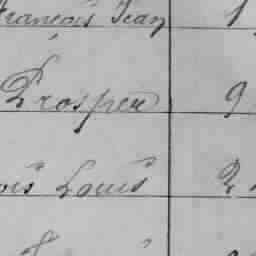 François Jean 1
Prosper 9
ois Louis 2